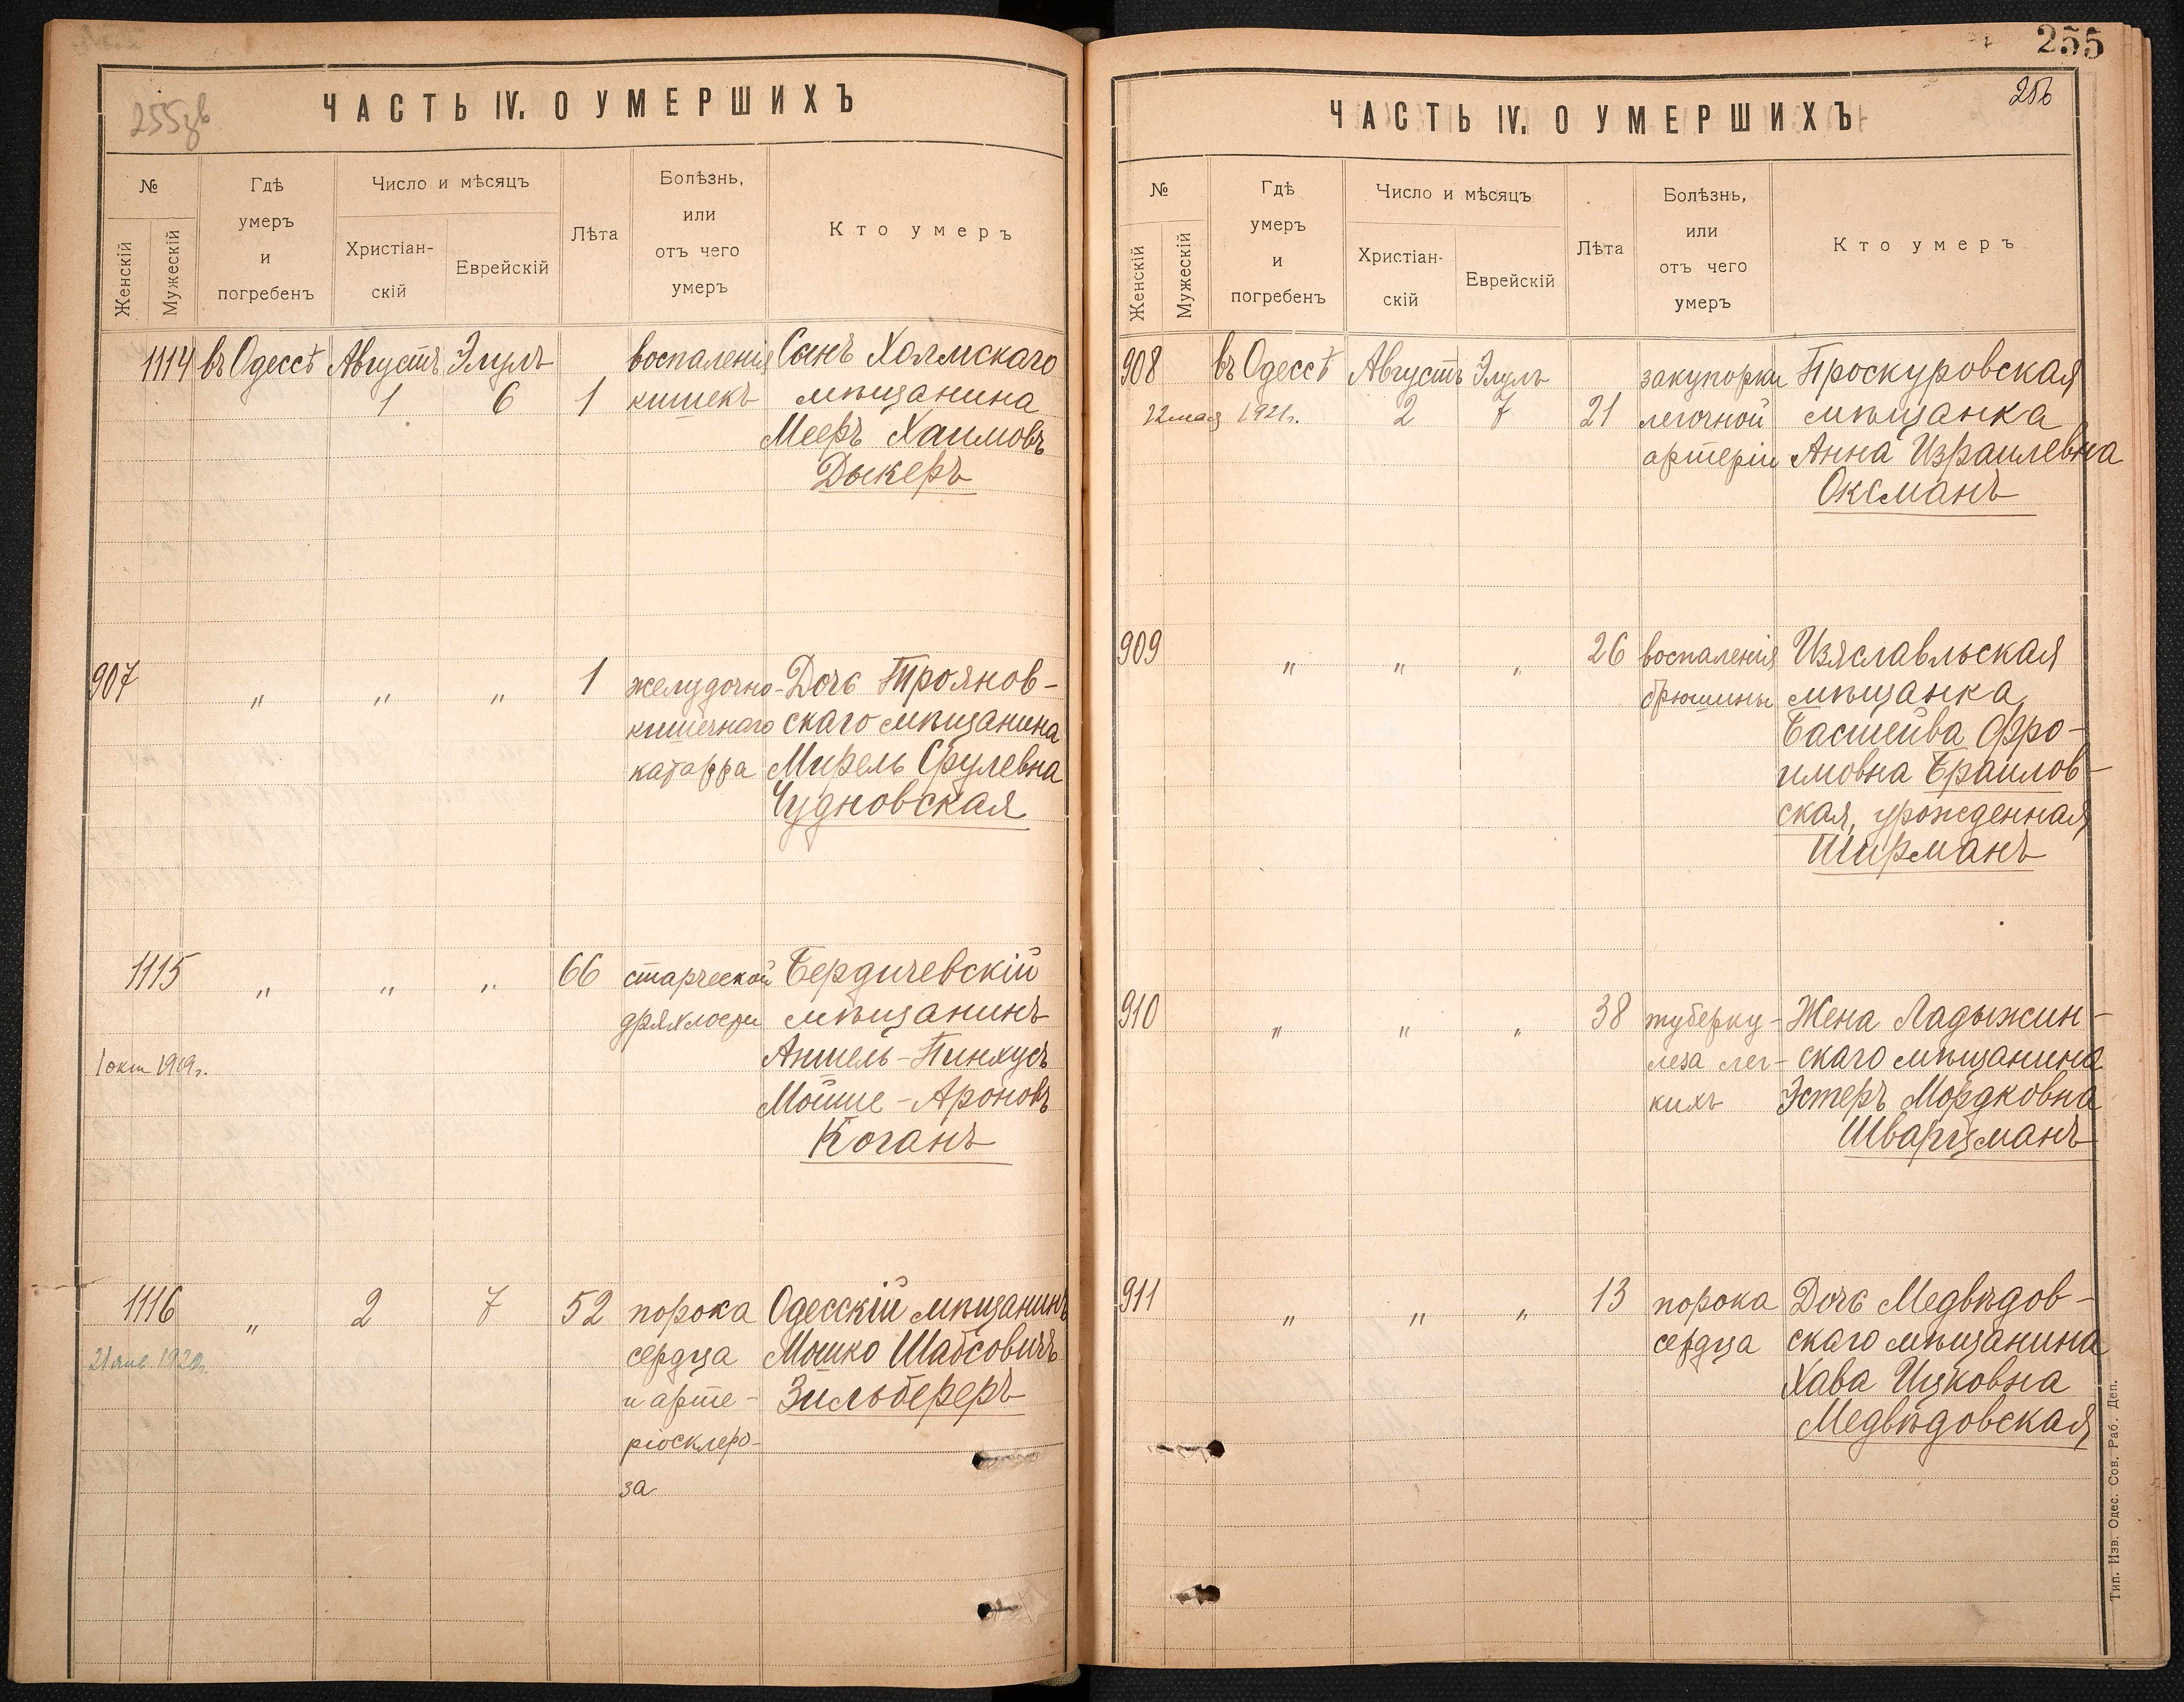 255зв
ЧАСТЬ IV. О УМЕРШИХЪ
№
Женскій
Мужескій
Гдѣ
умеръ
и
погребенъ
Число и мѣсяцъ
Христіан-
скій
Еврейскій
Лѣта
Болѣзнь,
или
отъ чего
умеръ
Кто умеръ
1114 въ Одессѣ Августъ Элулъ воспаленія Сынъ Холмскаго
1 6 1 кишекъ мѣщанина
Мееръ Хаимовъ
Дыкеръ
907 " " " 1 желудочно- Дочь Троянов-
кишечнаго скаго мѣщанина
катарра Мирель Срулевна
Чудновская
1115 " " " 66 старческой Бердичевскій
дряхлости мѣщанинъ
1 окт 1919г. Аншель-Пинхусъ
Мойше-Ароновъ
Коганъ
1116 " 2 7 52 порока Одесскій мѣщанинъ
21 янв 1920г. сердца Мошко Шабсовичъ
и арте- Зильбереръ
ріосклеро-
за
255
256
ЧАСТЬ IV. О УМЕРШИХЪ
№
Женскій
Мужескій
Гдѣ
умеръ
и
погребенъ
Число и мѣсяцъ
Христіан-
скій
Еврейскій
Лѣта
Болѣзнь,
или
отъ чего
умеръ
Кто умеръ
908 въ Одессѣ Августъ Элулъ закупорки Проскуровская
22 мая 1921г. 2 7 21 легочной мѣщанка
артеріи Анна Израилевна
Оксманъ
909 " " " 26 воспаленія Изяславльская
брюшины мѣщанка
Басшейва Фро-
имовна Браилов-
ская, урожденная
Ширманъ
910 " " " 38 туберку- Жена Ладыжин-
леза лег- скаго мѣщанина
кихъ Эстеръ Мордковна
Шварцманъ
911 " " " 13 порока Дочь Медвѣдов-
сердца скаго мѣщанина
Хава Ицковна
Медвѣдовская
Тип. Изв. Одес. Сов. Раб. Деп.